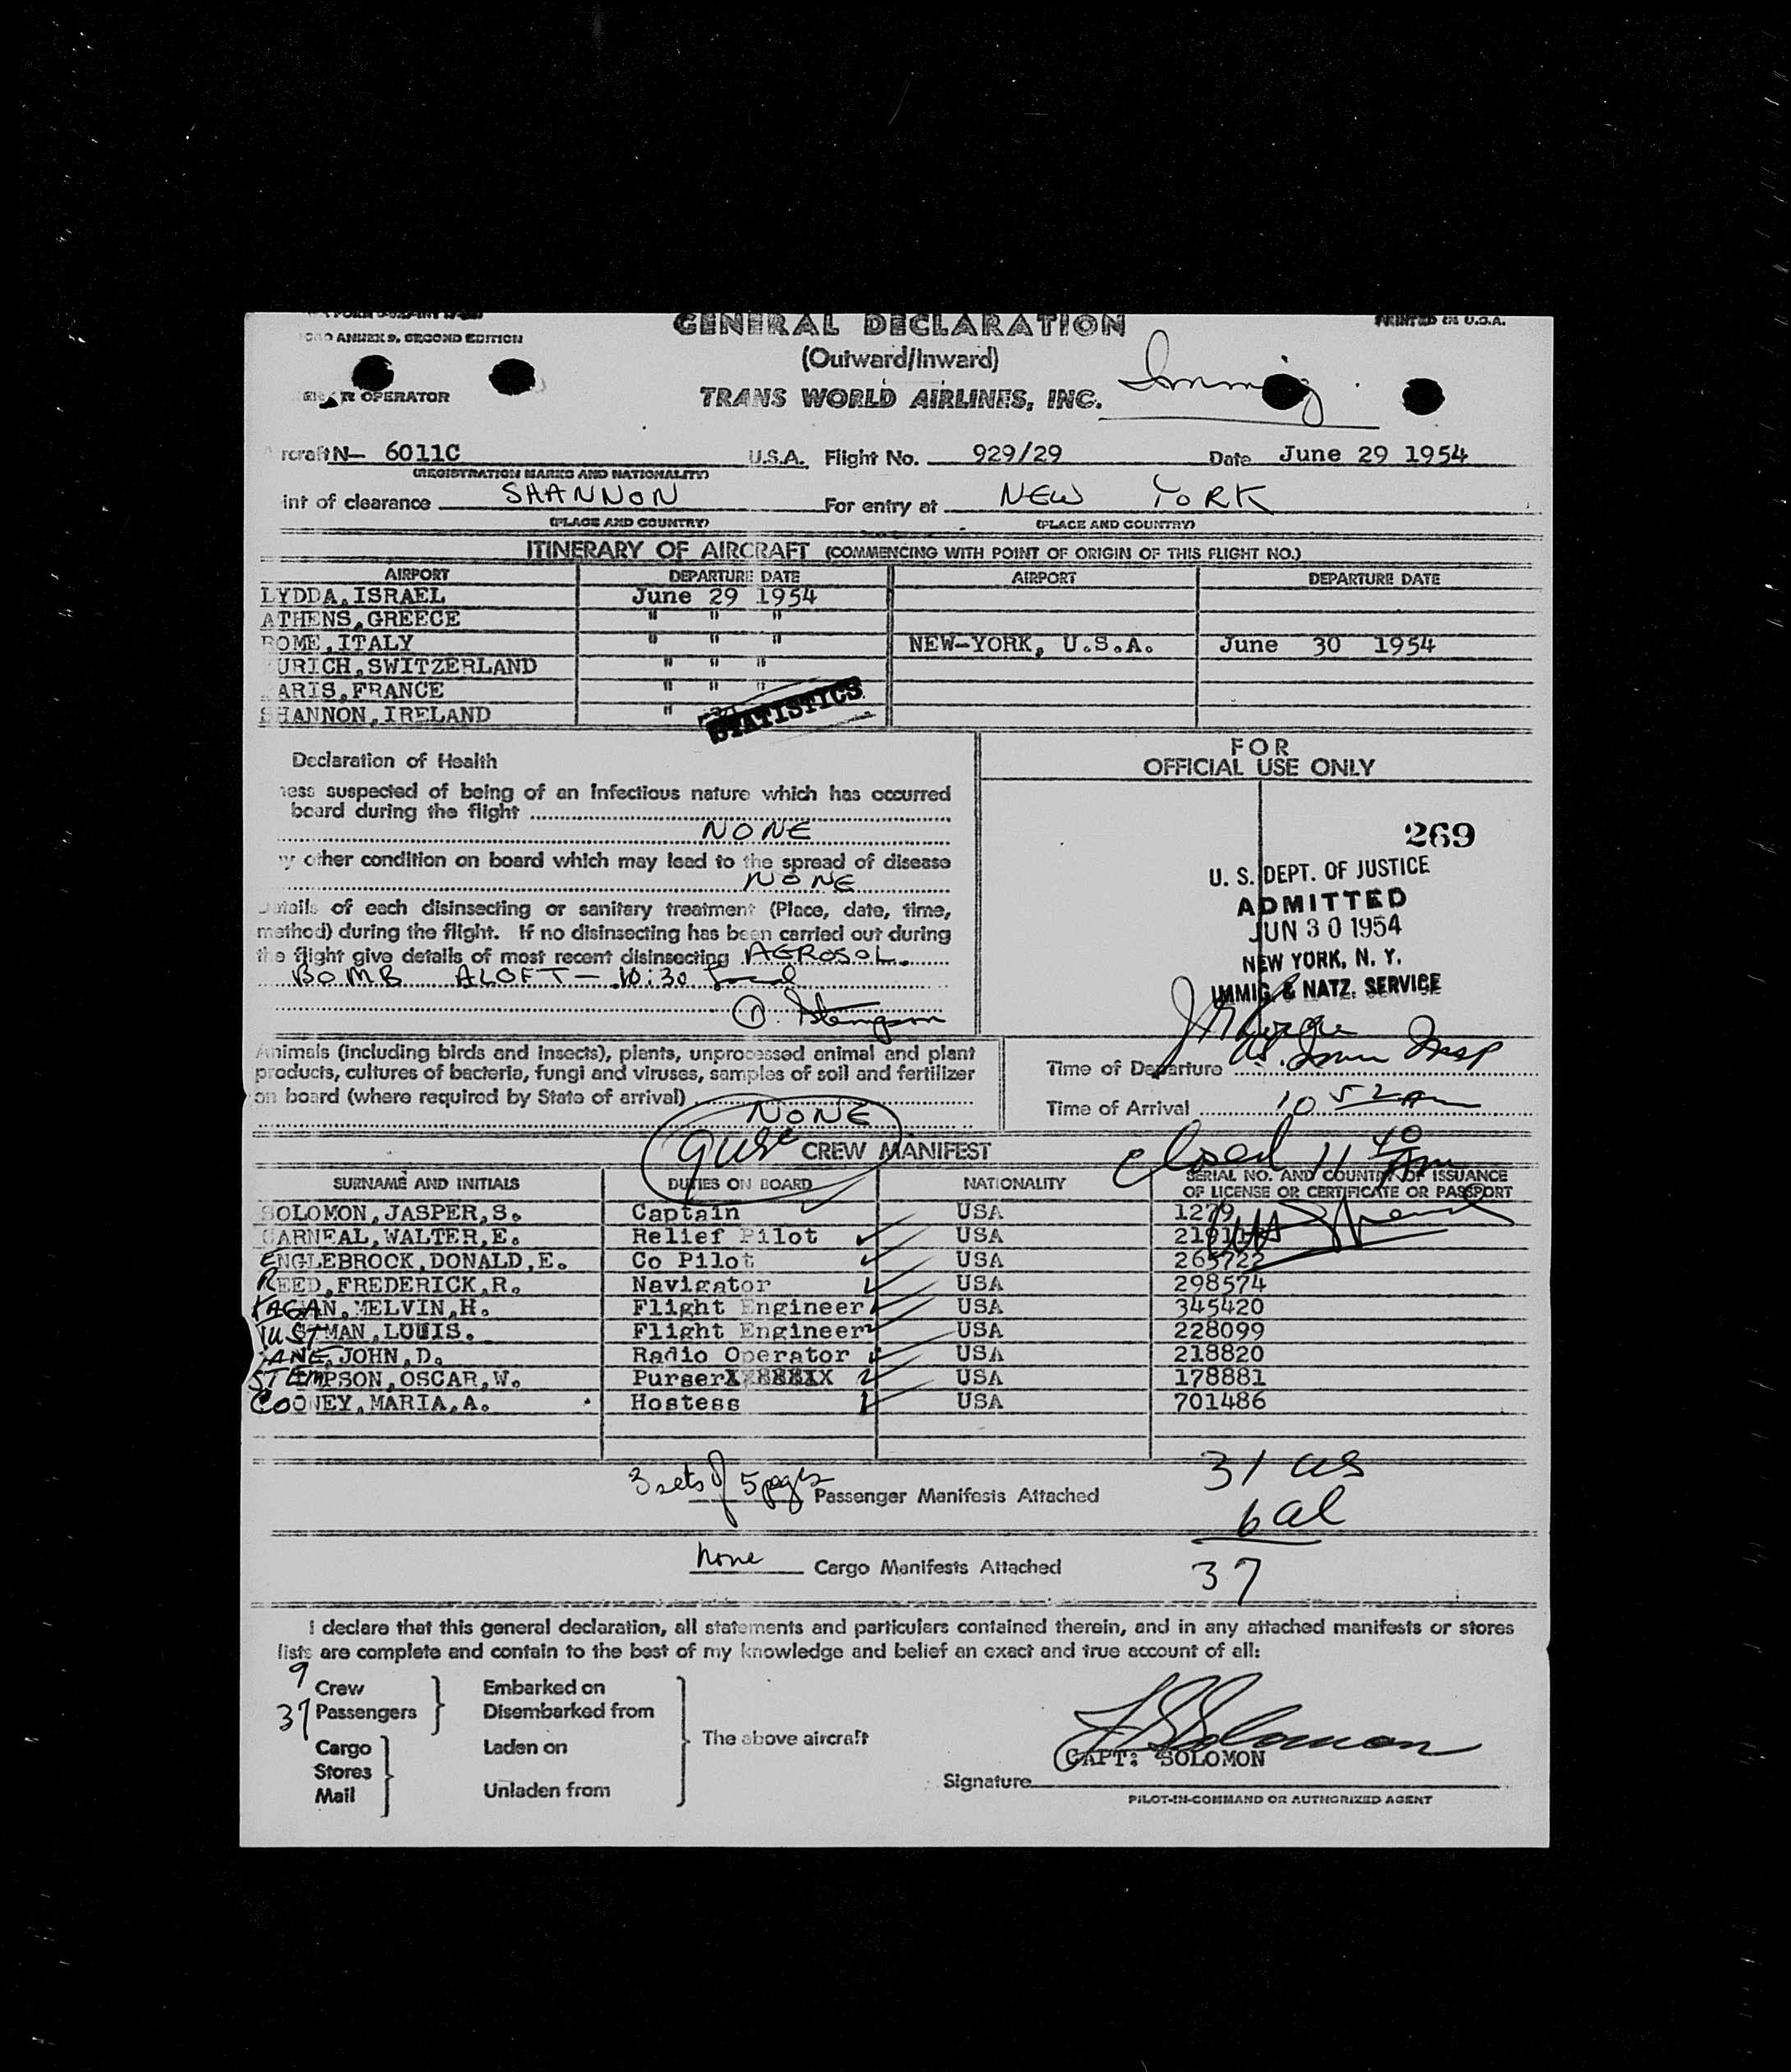 ANNEX 9, SECOND EDITION
PRINTED IN U.S.A.
GENERAL DECLARATION
(Outward/Inward)
OPERATOR
TRANS WORLD AIRLINES, INC.
Immig
rcraft N- 6011C U.S.A. Flight No. 929/29 Date June 29 1954
(REGISTRATION MARKS AND NATIONALITY)
int of clearance SHANNON For entry at NEW YORK
(PLACE AND COUNTRY) (PLACE AND COUNTRY)
ITINERARY OF AIRCRAFT (COMMENCING WITH POINT OF ORIGIN OF THIS FLIGHT NO.)
AIRPORT DEPARTURE DATE AIRPORT DEPARTURE DATE
LYDDA,ISRAEL June 29 1954
ATHENS,GREECE " " "
ROME,ITALY " " " NEW-YORK, U.S.A. June 30 1954
URICH,SWITZERLAND " " "
ARIS,FRANCE " " "
SHANNON,IRELAND "
STATISTICS
Declaration of Health
ness suspected of being of an infectious nature which has occurred
board during the flight
NONE
y other condition on board which may lead to the spread of disease
NONE
Details of each disinsecting or sanitary treatment (Place, date, time,
method) during the flight. If no disinsecting has been carried out during
the flight give details of most recent disinsecting AEROSOL.
BOMB ALOFT - 10:30
O. Stempson
FOR
OFFICIAL USE ONLY
269
U. S. DEPT. OF JUSTICE
ADMITTED
JUN 30 1954
NEW YORK, N. Y.
IMMIG. & NATZ. SERVICE
Insp
Animals (including birds and insects), plants, unprocessed animal and plant
products, cultures of bacteria, fungi and viruses, samples of soil and fertilizer
on board (where required by State of arrival)
NONE
Time of Departure
Time of Arrival 10 52 Am
closed 11 40 Am
9 USC
CREW MANIFEST
SURNAME AND INITIALS DUTIES ON BOARD NATIONALITY SERIAL NO. AND COUNTRY OF ISSUANCE
OF LICENSE OR CERTIFICATE OR PASSPORT
SOLOMON,JASPER,S. Captain USA 1279
CARNEAL,WALTER,E. Relief Pilot USA
ENGLEBROCK,DONALD,E. Co Pilot USA 265722
REED,FREDERICK,R. Navigator USA 298574
KAGAN,MELVIN,H. Flight Engineer USA 345420
TUSTMAN,LOUIS. Flight Engineer USA 228099
JOHN,D. Radio Operator USA 218820
STEMPSON,OSCAR,W. Purser USA 178881
COONEY,MARIA,A. Hostess USA 701486
3 sets of 5 pages Passenger Manifests Attached
31 us
6 al
37
none Cargo Manifests Attached
I declare that this general declaration, all statements and particulars contained therein, and in any attached manifests or stores
lists are complete and contain to the best of my knowledge and belief an exact and true account of all:
9 Crew
37 Passengers
Embarked on
Disembarked from
Cargo
Stores
Mail
Laden on
Unladen from
The above aircraft
J S Solomon
CAPT: SOLOMON
Signature
PILOT-IN-COMMAND OR AUTHORIZED AGENT